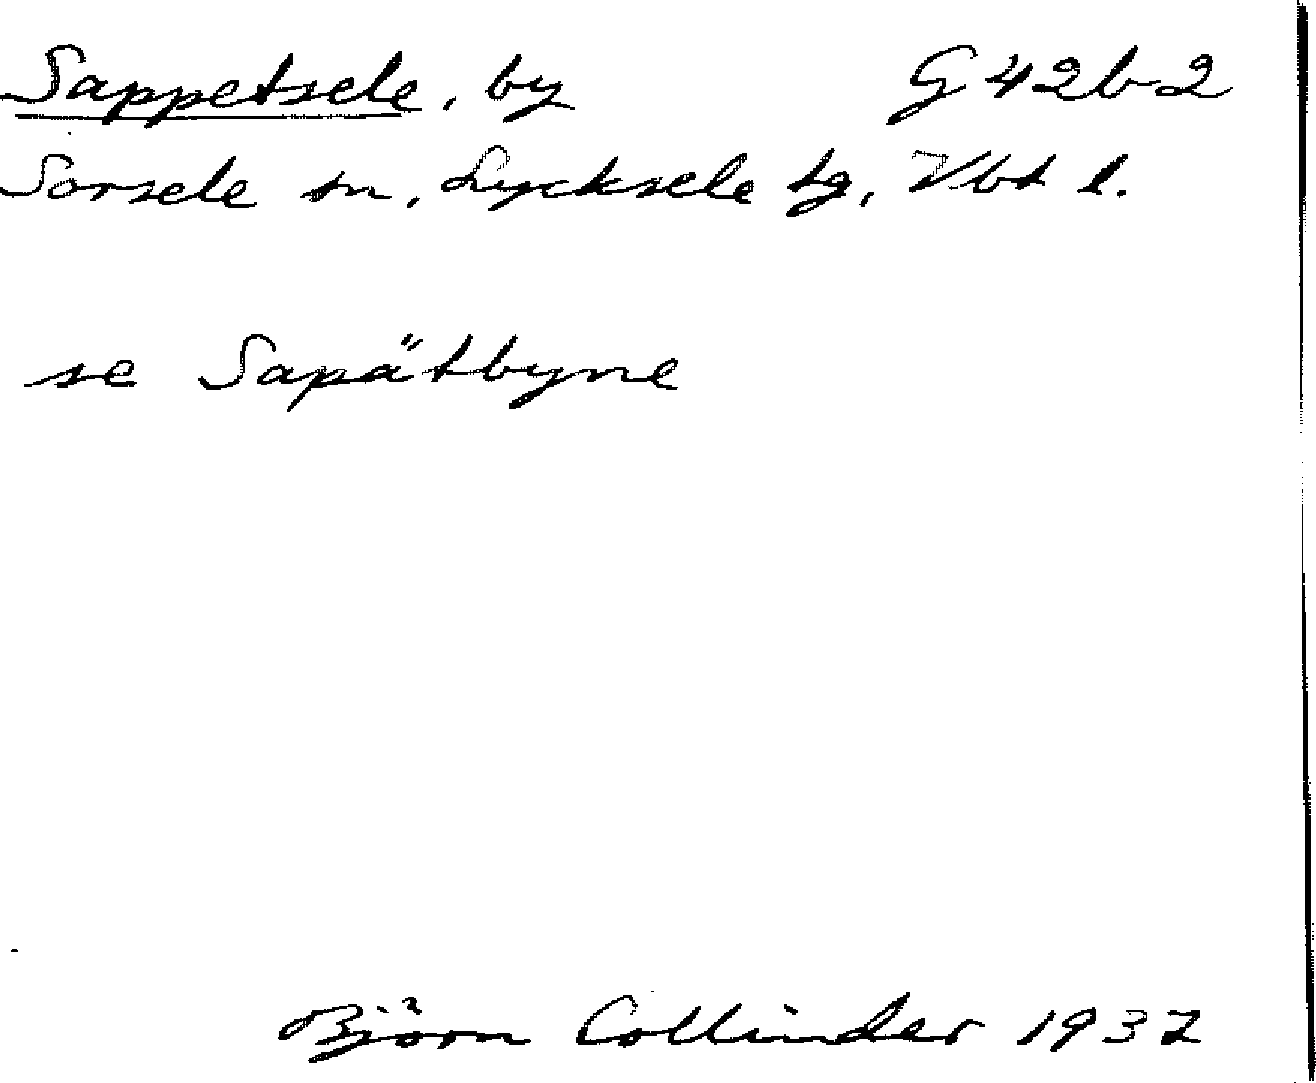 Sappetsele, by G 42b2
Sorsele sn, Lycksele tg, Vbt l.
se Sapätbyne
Björn Collinder 1937